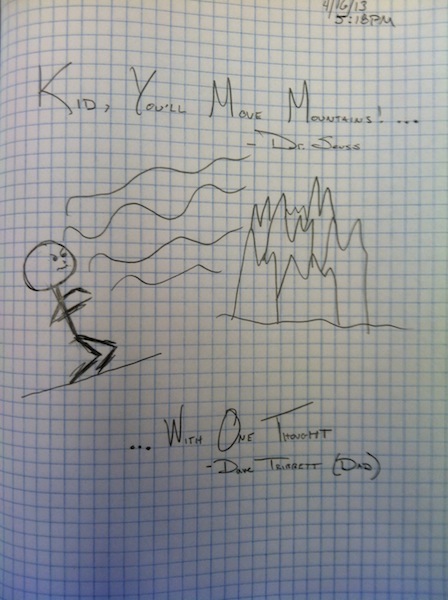 4/16/13
5:18PM
Kid, You'll Move Mountains! ...
- Dr. Seuss
... With One Thought
- Dave Tribbett (Dad)